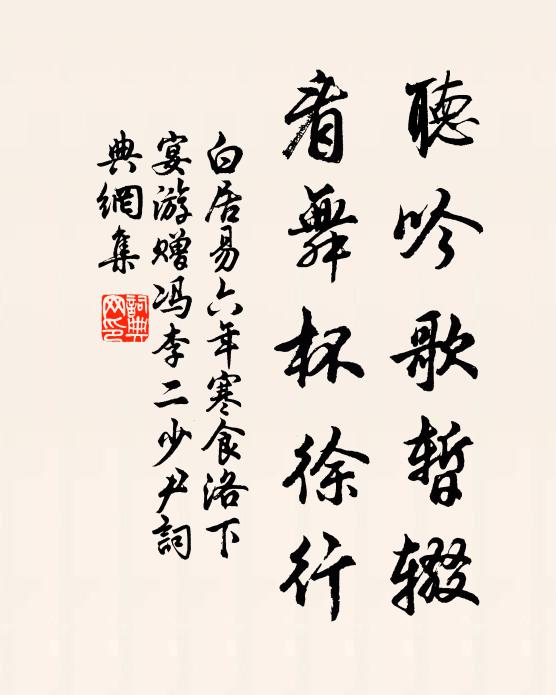 聽吟歌暫輟
看舞杯徐行
白居易六年寒食洛下
宴游赠冯李二少尹詞
典網集
詞典网印